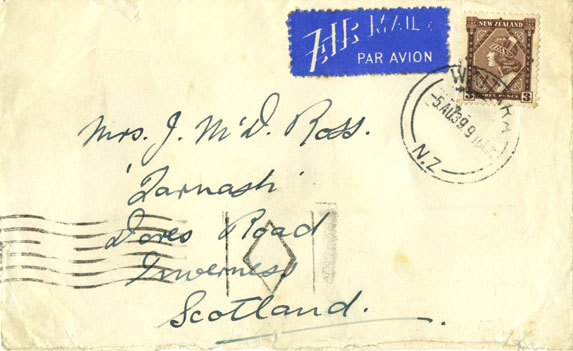 AIR MAIL
PAR AVION
NEW ZEALAND
3 3
N.Z.
-5 AU 39
Mrs. J. McD. Ross.
'Larnash'
Dores Road
Inverness
Scotland.